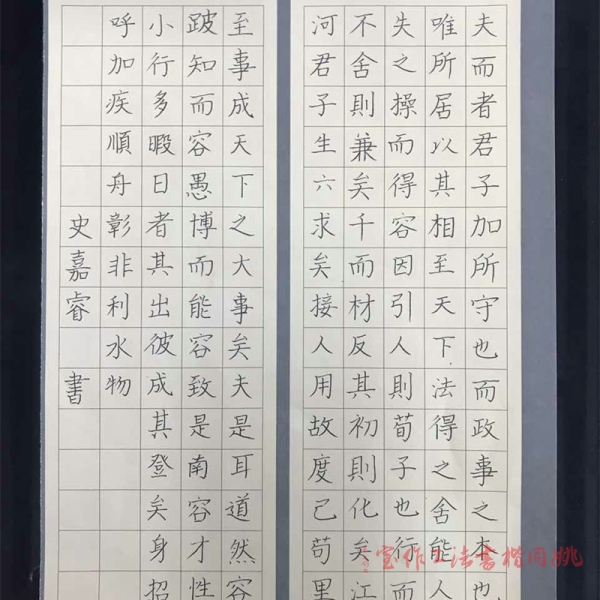 夫而者君子加所守也而政事之本也
唯所居以其相至天下法得之舍能人
失之操而得容因引人則荀子也行而
不舍則兼矣千而材反其初則化矣江
河君子生六求矣接人用故度己苟里
至事成天下之大事矣夫是耳道然容
跛知而容愚博而能容致是南容才性
小行多暇日者其出彼成其登矣身招
呼加疾順舟彰非利水物
史嘉睿 書
姚同楷書法工作室